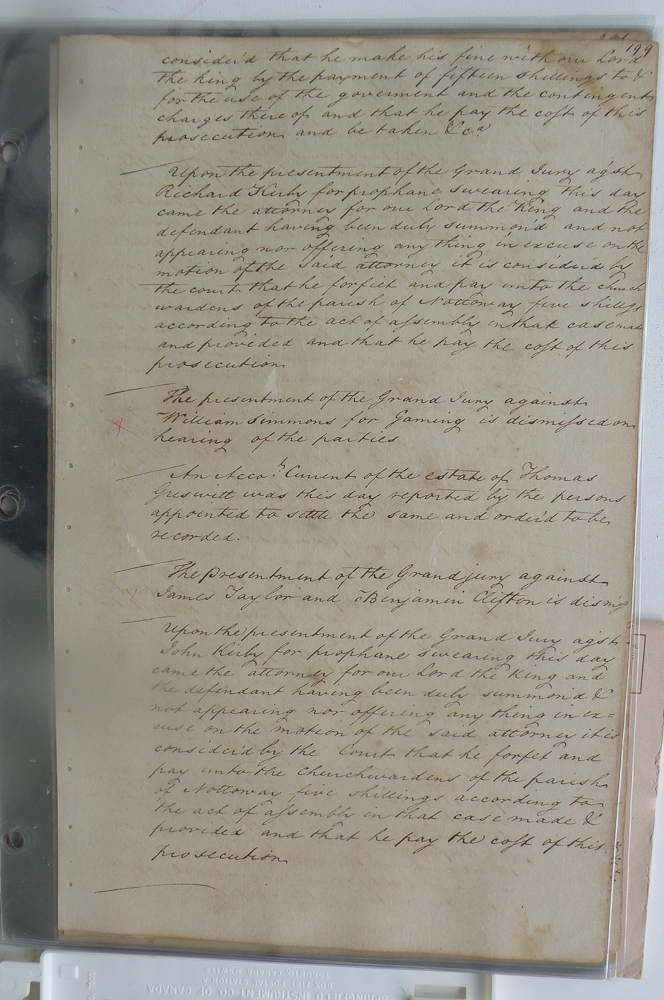 199
consider'd that he make his fine with our Lord
the king by the payment of fifteen shillings to &
for the use of the goverment and the contingent
charges there of and that he pay the cost of this
prosecution and be taken &ca
Upon the presentment of the Grand Jury agst
Richard Kirby for prophane swearing this day
came the attorney for our Lord the King and the
defendant having been duly summon'd and not
appearing nor offering any thing in excuse on the
motion of the said attorney it is consider'd by
the court that he forfiet and pay unto the church
wardens of the parish of Nottoway five shillgs
according to the act of assembly in that case made
and provided and that he pay the cost of this
prosecution
The presentment of the Grand Jury against
William Simmons for Gaming is dismissed on
hearing of the parties
An Accot Current of the estate of Thomas
Greswitt was this day reported by the persons
appointed to settle the same and order'd to be
recorded.
The presentment of the Grand jury against
James Taylor and Benjamin Clifton is dismisd
Upon the presentment of the Grand Jury agst
John Kirby for prophane swearing this day
came the attorney for our Lord the King and
the defendant having been duly summon'd &
not appearing nor offering any thing in ex=
cuse on the motion of the said attorney it is
consider'd by the Court that he forfet and
pay unto the Churchwardens of the parish
of Nottoway five shillings according to
the act of assembly in that case made &
provided and that he pay the cost of this
prosecution
SPRINGFIELD INSTRUMENT CO. OF CANADA